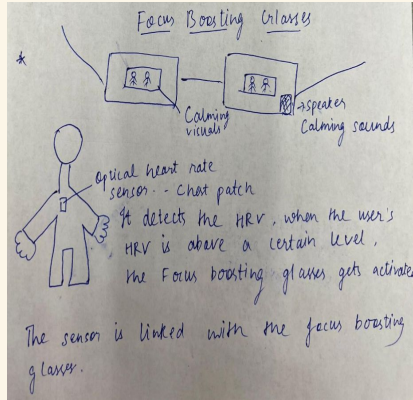 Focus Boosting Glasses
*
Calming
visuals
→ speaker
Calming sounds
optical heart rate
sensor. - Chest patch
It detects the HRV, when the user's
HRV is above a certain level,
the Focus boosting glasses gets activate
The sensor is linked with the focus boosting
glasses.